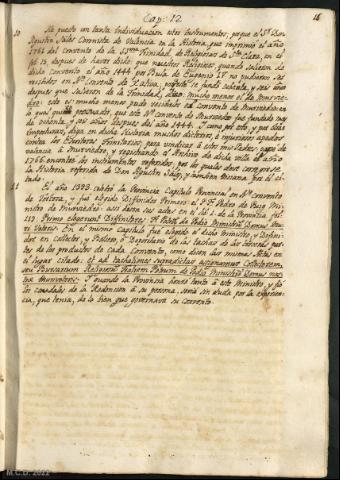 Cap: 12.
16
10 He puesto en tanta individuacion estos instrumentos, porque el P. Don
Agustin Sales Coronista de Valencia en la Historia, que imprimiò el año
1761 del convento de la SSma Trinidad, de Religiosas de Sta Clara, en el
fol 13, despues de haver dicho: que nuestros Religiosos, quando salieron de
dicho convento el año 1444 por Bula de Eugenio IV no pudieron ser
en Nro Convento de Xativa, se fundò setenta, y seis años
despues que salieron de la Trinidad, dice: mucho menos el de Murvie-
dro: esto es: mucho menos pudo recibirles el Convento de Murviedro en
lo qual quiere, que este Nro Convento de Murviedro fue fundado mas
de setenta, y seis años despues del año 1444. Y como por esto, y por otras
diga en dicha Historia muchos dicterios, è injuriosos apodos
contra los Escritores Trinitarios, para vindicar à estos mis Padres, pasè de
valencia à Murviedro, y registrando el Archivo de dicha villa el año
1766 encontrè los instrumentos referidos, por los quales devo corregirse
la Historia referida de Don Agustin Sales, y tambien Diriana, por lo di-
cho.
11 El año 1393 celebrò la Provincia Capitulo Provincial en Nro convento
de Valera, y fue elegido Difinidor Primero el P. F. Pedro de Puig Mi-
nistro de Murviedro: assi dicen sus actas en el lib. 1. de la Provincia fol
113: Primo elegerunt Difinitores: F. Petrus de Podio Ministrũ Domus Mu-
ri Veteris. En el mismo Capitulo fue elegido el dicho Ministro, y Difini-
dor en Collector, y Bolsero, ò Depositario de las tachas de las terceras par-
tes de productos de cada Convento, como dicen las mismas Actas en
el lugar citado: et ad tachationes supradictas assignamus Collectorem,
seu Bursarium Religiosũ Fratrem Petrum de Podio Ministrũ Domus nos-
træ Muriveteris. Y quando la Provincia honrò tanto à este Ministro, y fiò
los caudales de la Redencion à su persona, seria sin duda por la experien-
cia, que tenia, de lo bien que governava su Convento.
M.C.D. 2022